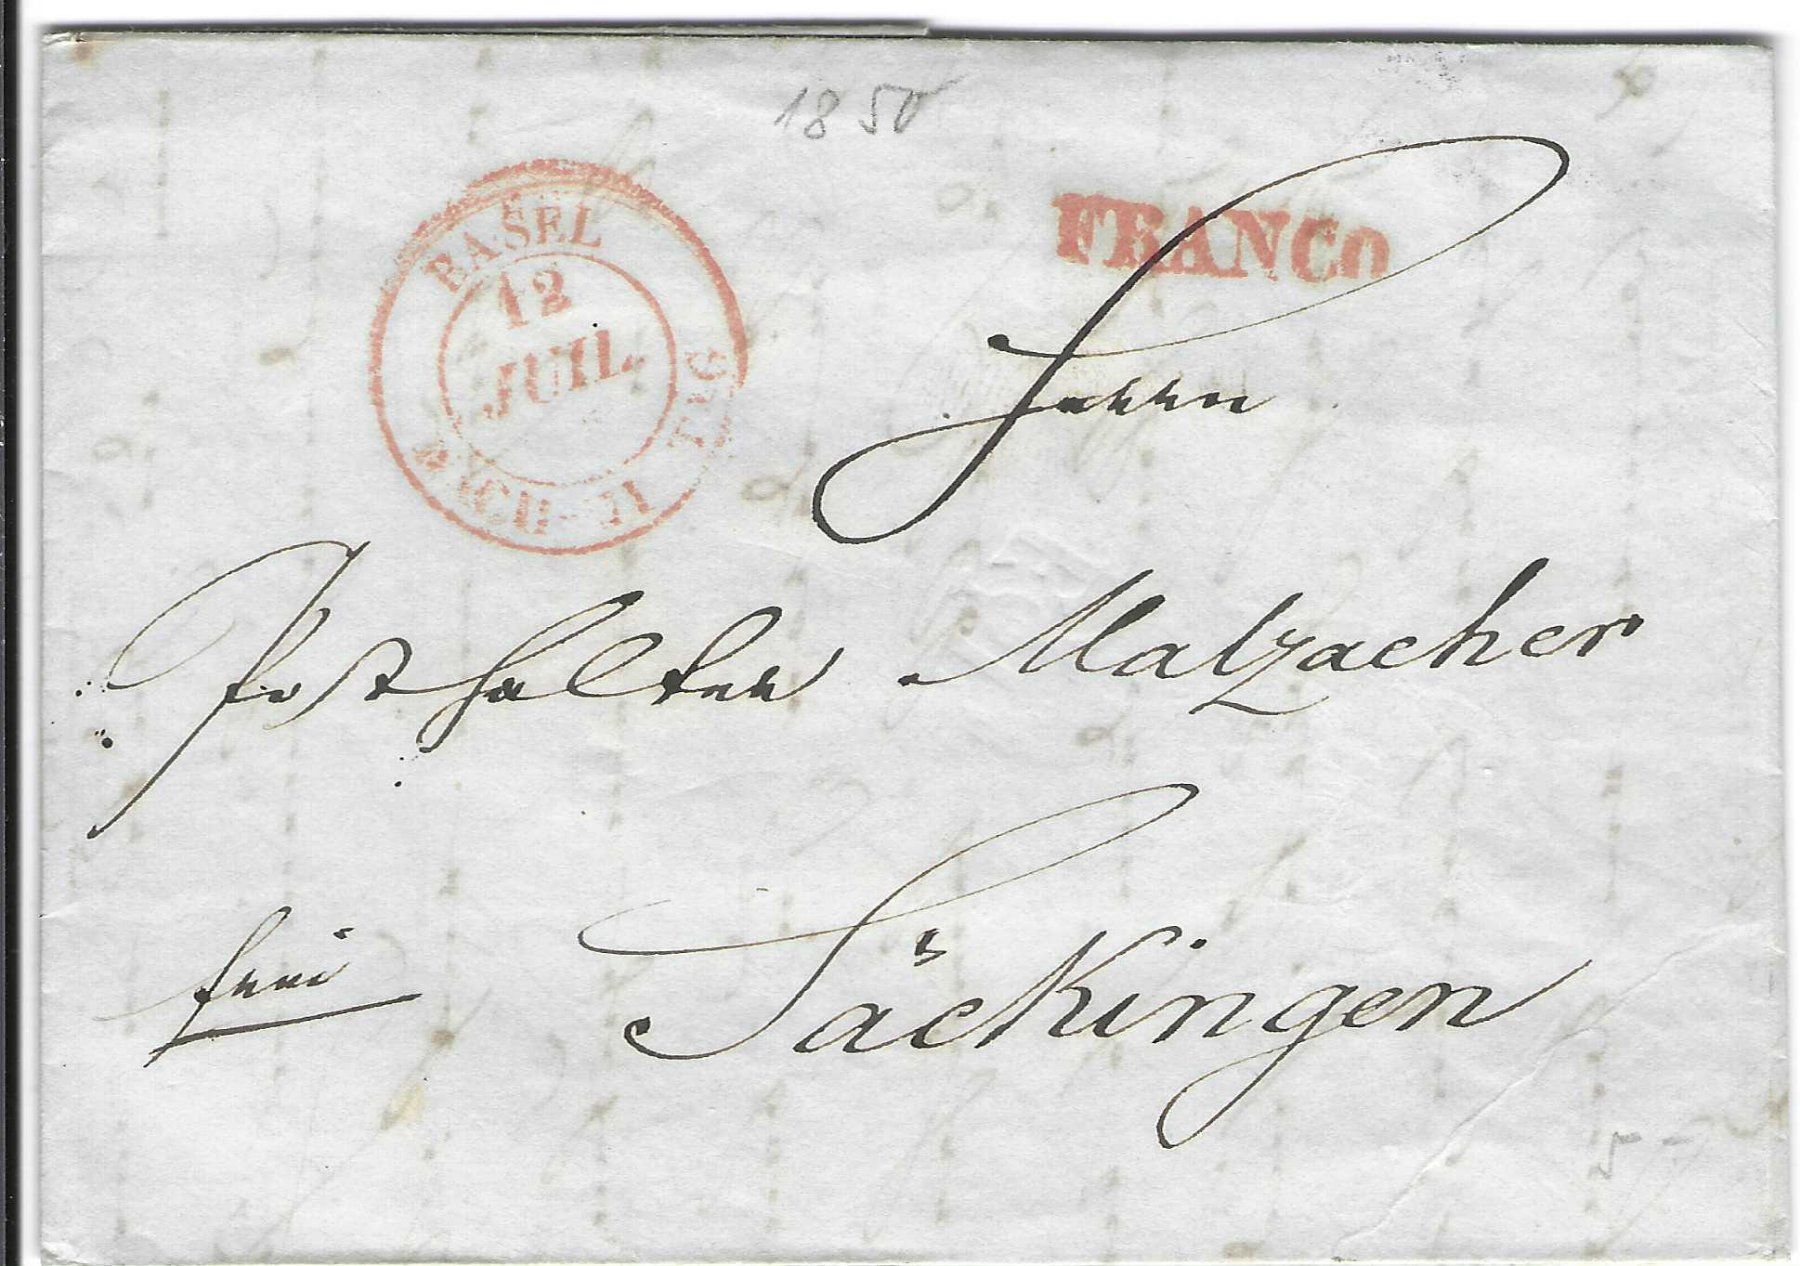 1850
BASEL
12
JUIL.
NACH-MITTAG
FRANCO
Herrn
Posthalter Malzacher
frei
Säckingen